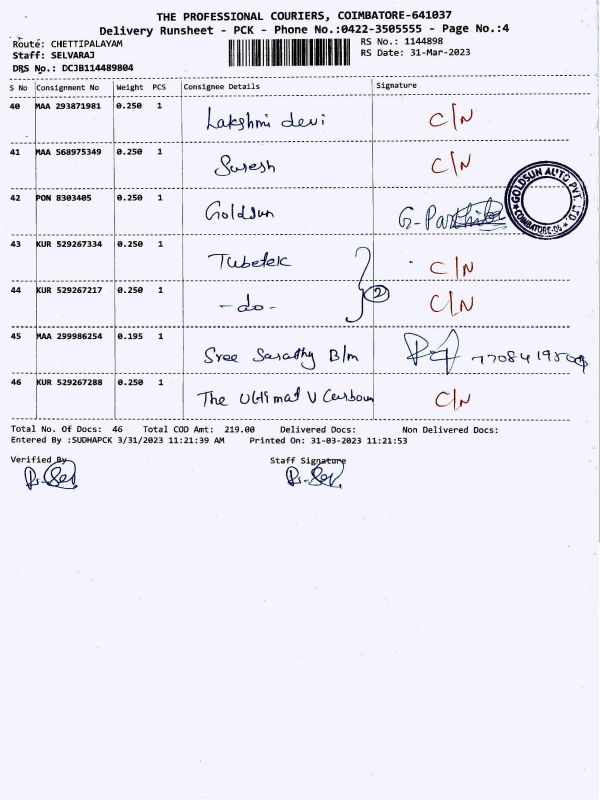 THE PROFESSIONAL COURIERS, COIMBATORE-641037
Delivery Runsheet - PCK - Phone No.:0422-3505555 - Page No.:4
Route: CHETTIPALAYAM
Staff: SELVARAJ
DRS No.: DCJB114489804
RS No.: 1144898
RS Date: 31-Mar-2023
S No Consignment No Weight PCS Consignee Details Signature
40 MAA 293871981 0.250 1 Lakshmi devi C/N
41 MAA 568975349 0.250 1 Suresh C/N
42 PON 8303405 0.250 1 Goldsun G-Parthiba
GOLDSUN AUTO PVT. LTD
COIMBATORE
43 KUR 529267334 0.250 1 Tubetek C/N
44 KUR 529267217 0.250 1 -do- 2 C/N
45 MAA 299986254 0.195 1 Sree Sarathy B/m
46 KUR 529267288 0.250 1 The Ultimat V Carboun C/N
Total No. Of Docs: 46 Total COD Amt: 219.00 Delivered Docs: Non Delivered Docs:
Entered By :SUDHAPCK 3/31/2023 11:21:39 AM Printed On: 31-03-2023 11:21:53
Verified By Staff Signature